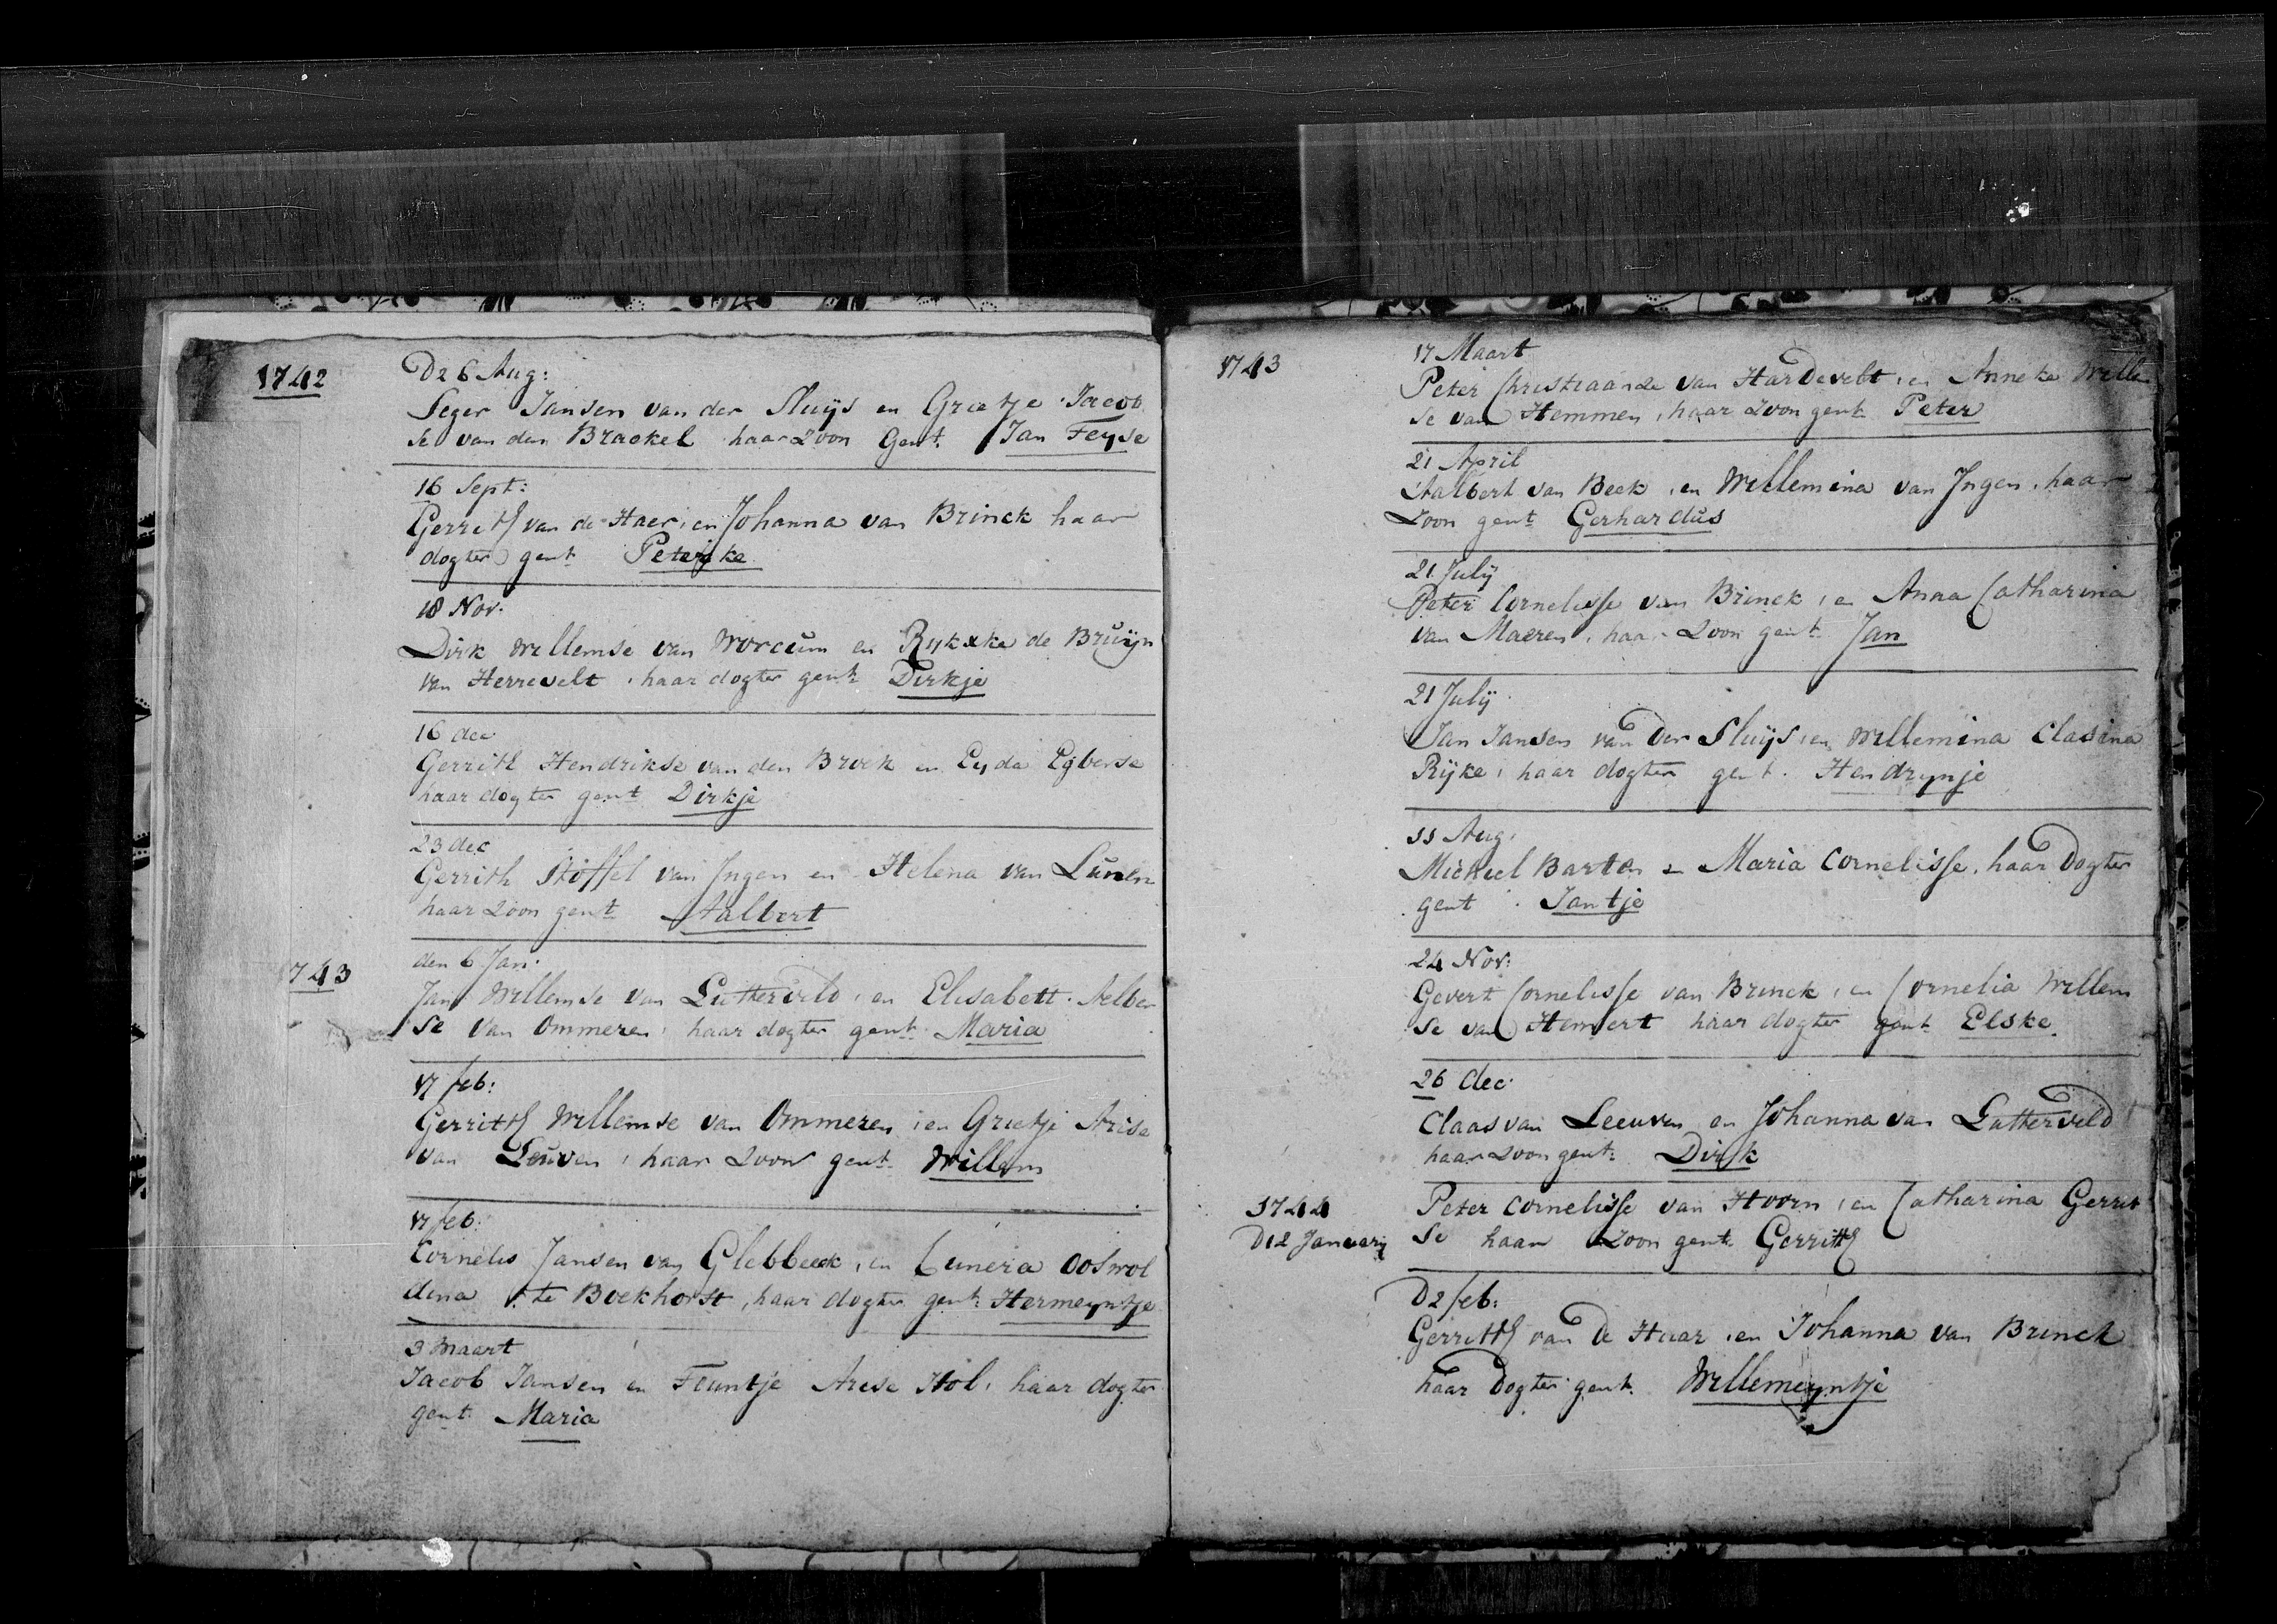 1742
D 26 Aug:
Seger Jansen van der Sluijs en Grietje Jacob
se van den Brackel haar Zoon Gent. Jan Feyse
16 Sept:
Gerrith van de Haer, en Johanna van Brinck haar
dogter gent Peterke
18 Nov.
Dirk Willemse van Worcum en Rykxke de Bruijn
van Herrevelt, haar dogter gent. Dirkje
16 dec
Gerrith Hendrikse van den Broek en Eyda Egberse
haar dogter gent Dirkje
23 dec
Gerrith Stoffel van Jngen en Helena van Lunen
haar Zoon gent Aalbert
1743
den 6 Jan.
Jan Willemse van Lutterveld, en Elisabett Aelber
se van Ommeren, haar dogter gent. Maria
17 feb:
Gerrith Willemse van Ommeren, en Grietje Arise
van Leuven, haar Zoon gent. Willem
17 feb:
Cornelis Jansen van Glebbeek, en Cunera Ooswol
dina te Boekhorst, haar dogter gent: Hermeyntje
3 maart
Jacob Jansen en Teuntje Arise Hol, haar dogter
gent. Maria
1743
17 Maart
Peter Christiaanse van Hardevelt, en Anneke Wille
se van Hemmen, haar Zoon gent Peter
21 April
Aalbert van Beek, en Willemina van Jngen, haar
Zoon gent Gerhardus
21 July
Peter Cornelisse van Brinck, en Anna Catharina
van Maeren, haar Zoon gent. Jan
21 July
Jan Jansen van der Sluijs, en Willemina Clasina
Rijke, haar dogter gent. Hendrynje
11 Aug.
Michiel Barten en Maria Cornelisse, haar Dogter
gent. Jantje
24 Nov:
Gevert Cornelisse van Brinck, en Cornelia Willem
se van Hemert haar dogter gent Elske
26 dec.
Claas van Leeuwen en Johanna van Lutterveld
haar Zoon gent. Dirk
1744
D 12 January
Peter Cornelisse van Hoorn, en Catharina Gerrit
se haar Zoon gent Gerrith
D 2 feb:
Gerrith van de Haar, en Johanna van Brinck
haar Dogter gent. Willemeyntje